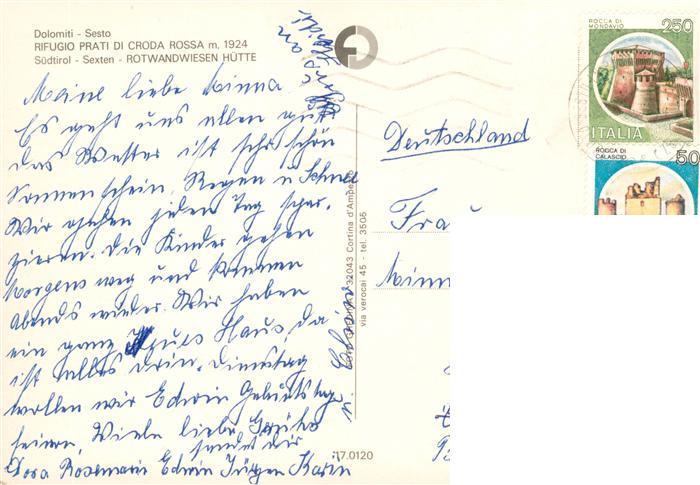 Dolomiti - Sesto
RIFUGIO PRATI DI CRODA ROSSA m. 1924
Südtirol - Sexten - ROTWANDWIESEN HÜTTE
Meine liebe Minna
Es geht uns allen gut
das Wetter ist sehr schön
Sonnenschein, Regen u Schnee
Wir gehen jeden Tag spa-
zieren. Die Kinder gehen
Morgens weg und kommen
Abends wieder. Wir haben
ein ganz Haus, da
ist alles drin. Dienstag
wollen wir Edwin Geburtstag
feiern. Viele liebe Grüße
sendet dir
Dora Rosemarie Edwin Jürgen Karin
u.
32043 Cortina d'Ampezzo
via verocai 45 - tel. 3505
17.0120
Deutschland
Frau
Minn
ROCCA DI
MONDAVIO
250
ITALIA
ROCCA DI
CALASCIO
50